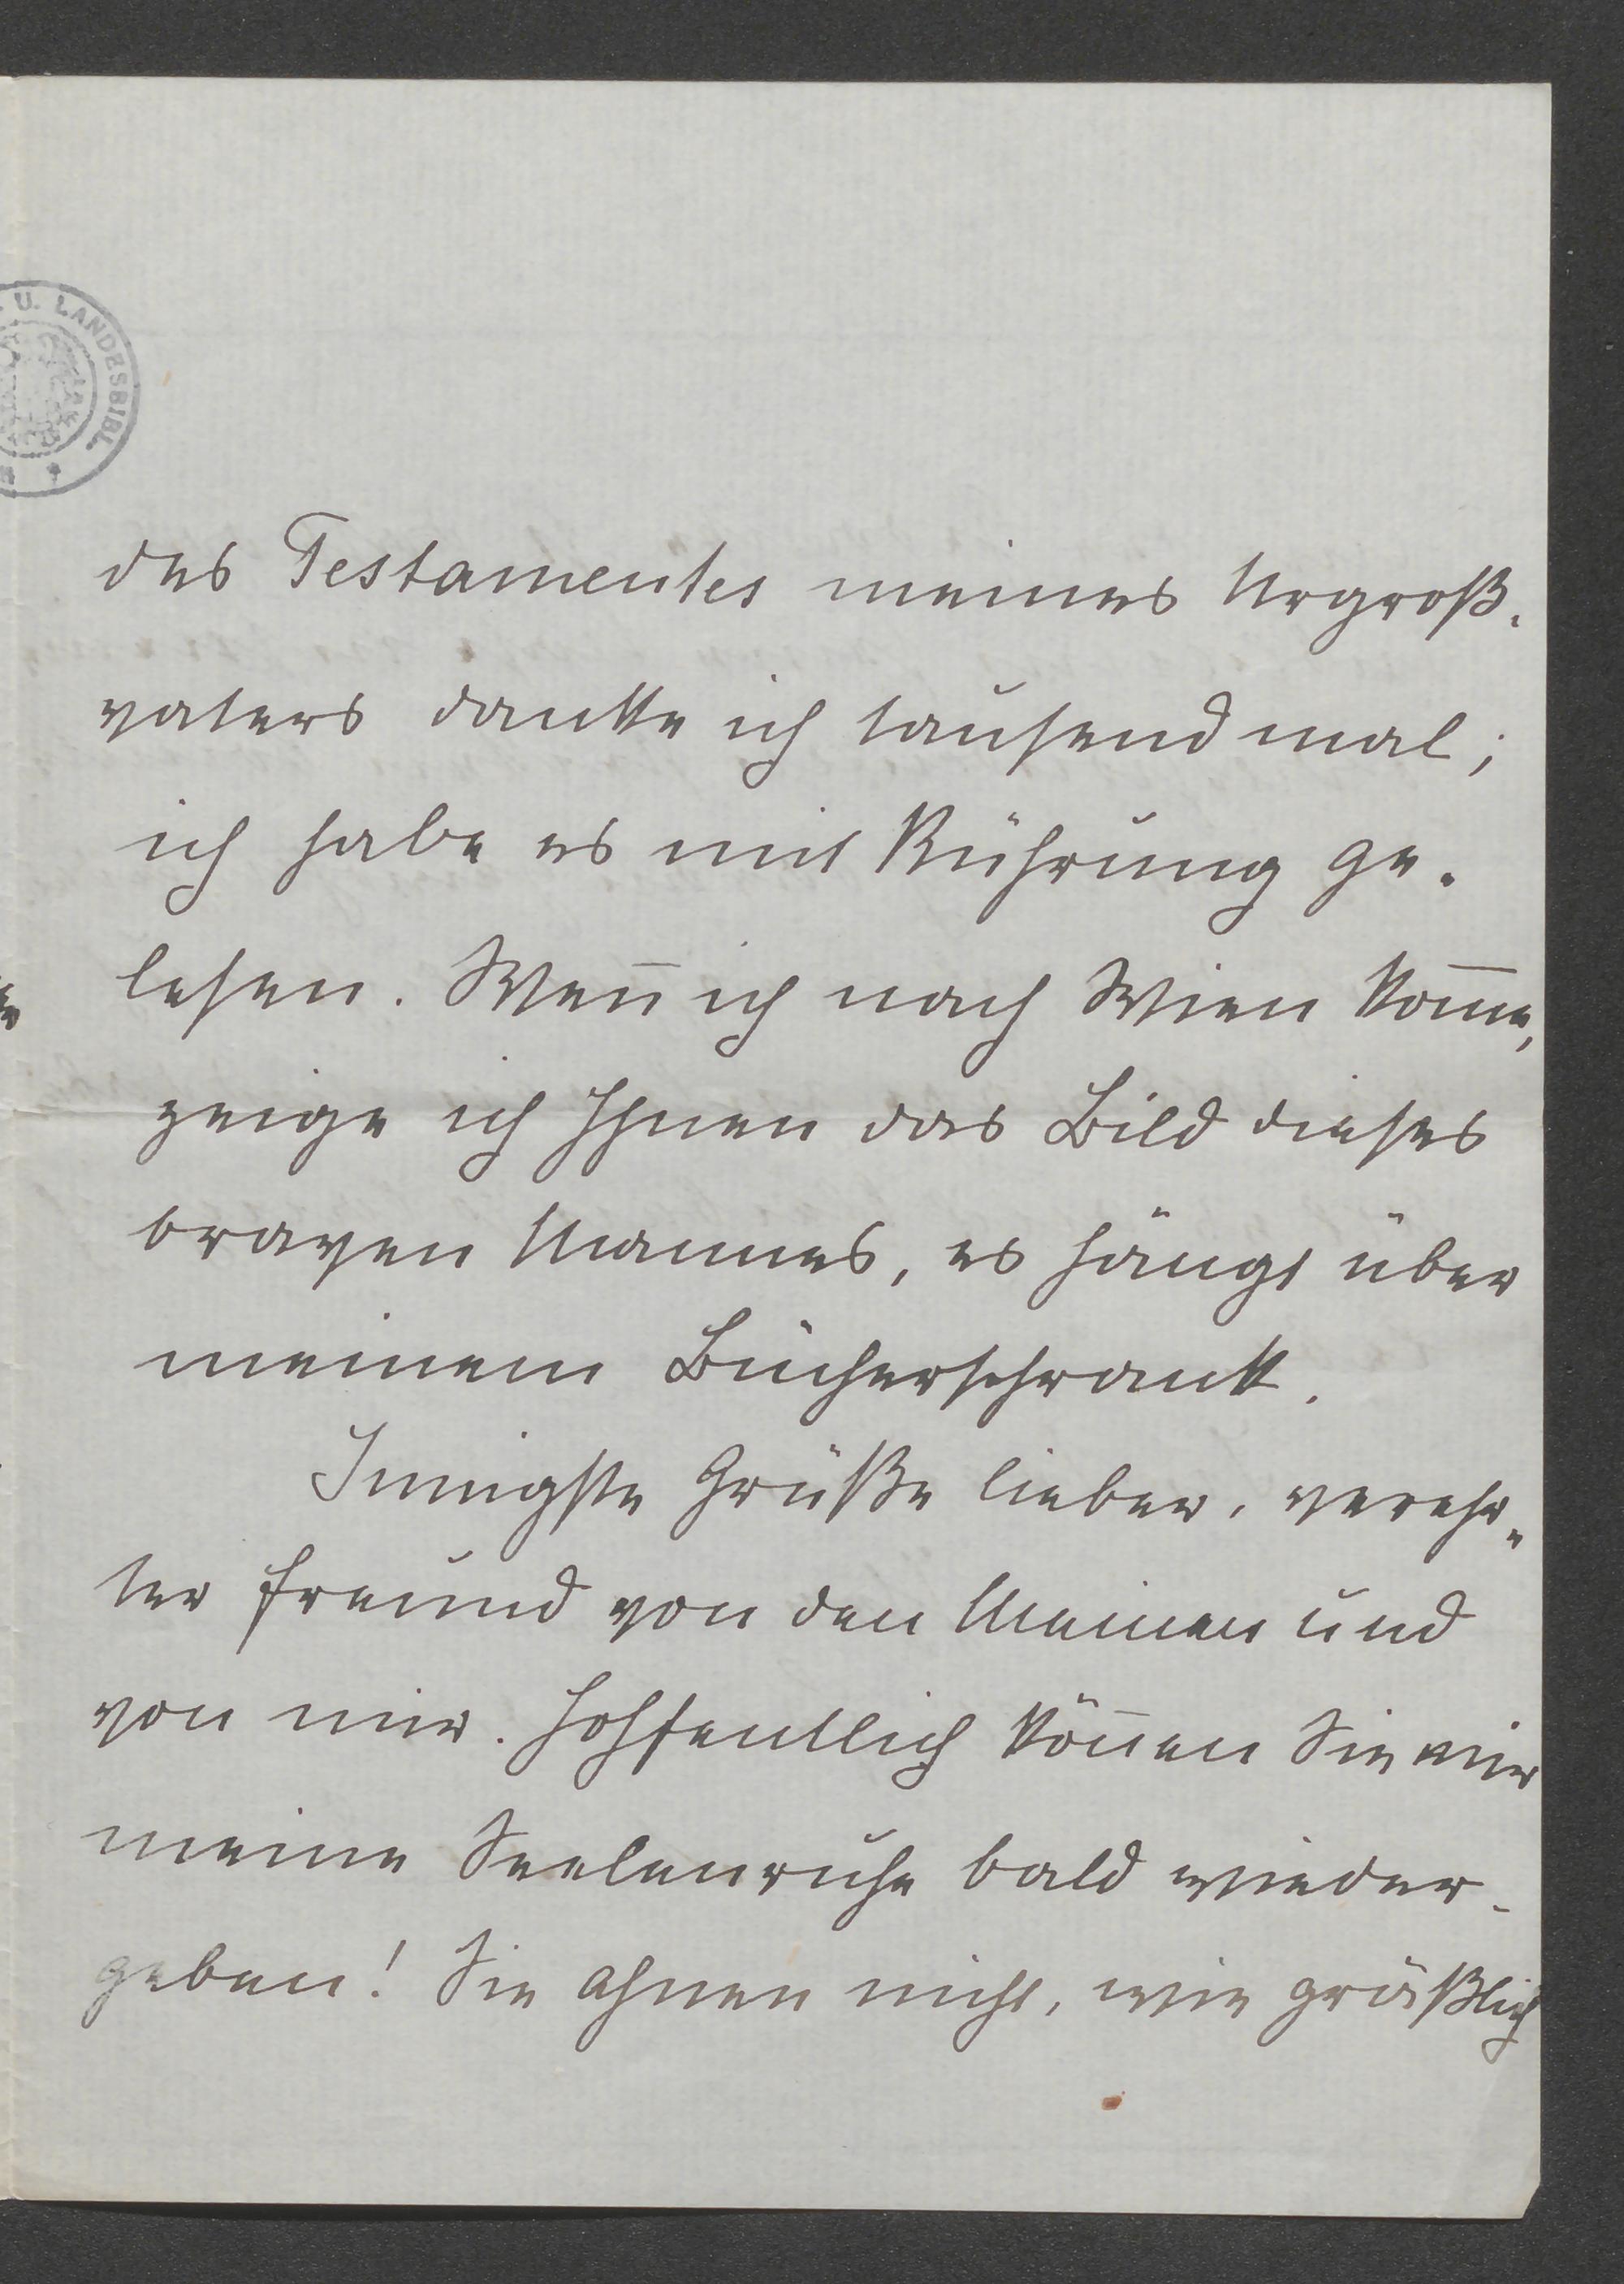 U. LANDESBIBL.
des Testamentes meines Urgroß-
vaters danke ich tausend mal;
ich habe es mit Rührung ge-
lesen. Wen̄ ich nach Wien kom̄e,
zeige ich Ihnen das Bild dieses
braven Mannes, es hängt über
meinem Bücherschrank.
Innigste Grüße lieber, verehr-
ter Freund von den Meinen und
von mir. Hoffentlich kön̄en Sie mir
meine Seelenruhe bald wieder-
geben! Sie ahnen nicht, wie gräßlich